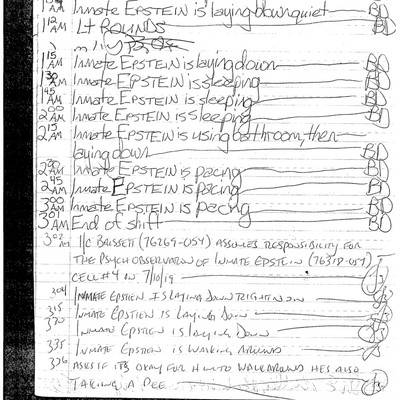 AM Inmate EPSTEIN is laying down quiet BD
1 12 AM Lt ROUNDS
1 15 AM Inmate EPSTEIN is laying down BD
1 30 AM Inmate EPSTEIN is sleeping BD
1 45 AM Inmate EPSTEIN is sleeping BD
2 00 AM Inmate EPSTEIN is sleeping BD
2 15 AM Inmate EPSTEIN is using bathroom, then
laying down BD
2 30 AM Inmate EPSTEIN is pacing BD
2 45 AM Inmate EPSTEIN is pacing BD
3 00 AM Inmate EPSTEIN is pecing BD
3 01 AM End of shift BD
3 02 AM I/C BRISSETT (76269-054) ASSUMES RESPONSIBILITY FOR
THE PSYCH OBSERVATION OF INMATE EPSTEIN (76318-054)
CELL #4 IN 7/10/19
304 INMATE EPSTIEN IS LAYING DOWN RIGHT NOW
315 INMATE EPSTIEN IS LAYING DOWN
320 INMATE EPSTIEN IS LAYING DOWN
335 INMATE EPSTIEN IS WALKING AROUND
336 ASKS IF ITS OKAY FOR HIM TO WALK AROUND HES ALSO
TAKING A PEE